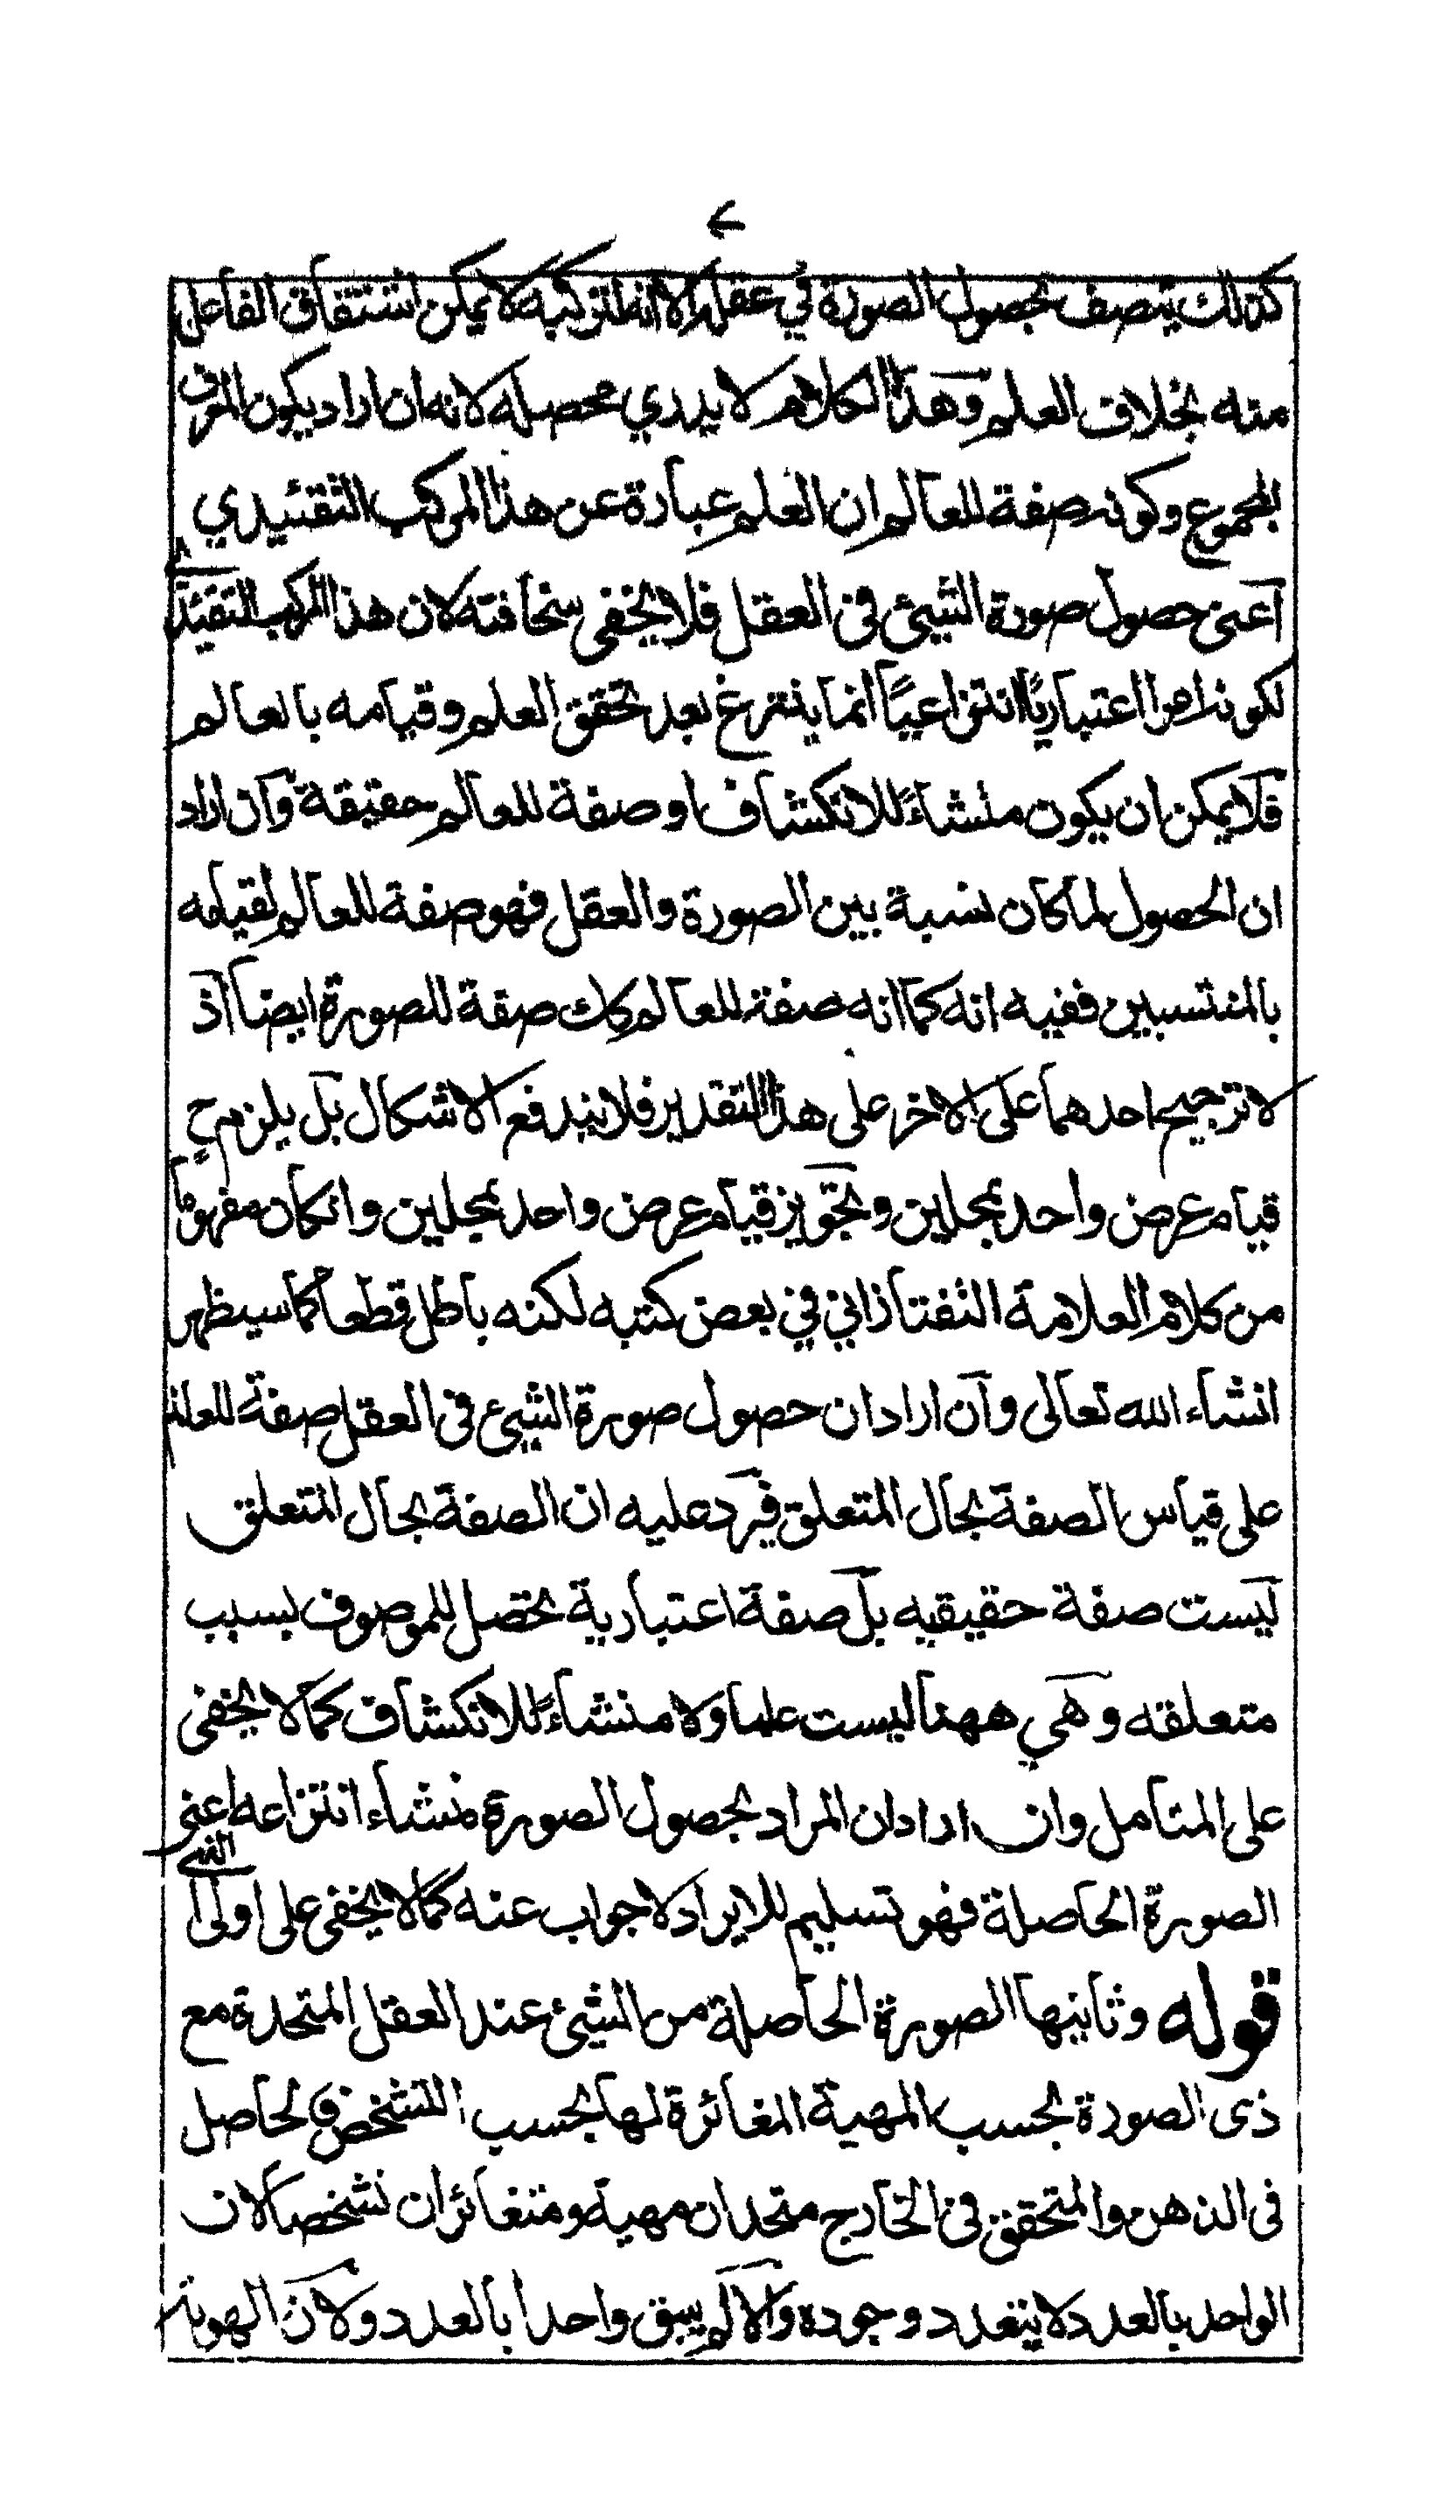 كذالك يتصف بحصول الصورة في عقله الا انه لتركبه لا يمكن اشتقاق الفاعل
منه بخلاف العلم وهذا الكلام لا يدري محصله لانه ان اراد بكون المعرف
المجموع وكونه صفة للعالم ان العلم عبارة عن هذا المركب التقئيدي
اعنى حصول صورة الشيئ فى العقل فلا يخفى سخافته لان هذا المركب التقئيدي
لكونه امرا اعتباريًا انتزاعيًا انما ينتزع بعد تحقق العلم وقيامه بالعالم
فلا يمكن ان يكون منشاءً للانكشاف وصفة للعالم حقيقة وان اراد
ان الحصول لما كان نسبة بين الصورة والعقل فهو صفة للعالم لقيامه
بالمنتسبين ففيه انه كما انه صفة للعالم كك صفة للصورة ايضا اذ
لا ترجيح احدهما على الاخر على هذا التقدير فلا يندفع الاشكال بل يلزم ح
قيام عرض واحد بمحلين وتجويز قيام عرض واحد بمحلين وانكان مفهومًا
من كلام العلامة التفتازاني في بعض كتبه لكنه باطل قطعا كما سيظهر
انشاء الله تعالى وان اراد ان حصول صورة الشيئ فى العقل صفة للعالم
على قياس الصفة بحال المتعلق فيرد عليه ان الصفة بحال المتعلق
ليست صفة حقيقيه بل صفة اعتبارية تحصل للموصوف بسبب
متعلقه وهي ههنا ليست علما ولا منشاءً للانكشاف كما لا يخفى
على المتامل وان اراد ان المراد بحصول الصورة منشاء انتزاعه اعني
الصورة الحاصلة فهو تسليم للايراد لا جواب عنه كما لا يخفى على اولى النهى
قوله وثانيها الصورة الحاصلة من الشيئ عند العقل المتحدة مع
ذى الصورة بحسب المهية المغائرة لها بحسب التشخص فالحاصل
فى الذهن والمتحقق فى الخارج متحدان مهية ومتغائران تشخصا لان
الواحد بالعدد لا يتعدد وجوده والا لم يبق واحدا بالعدد ولان الهوية